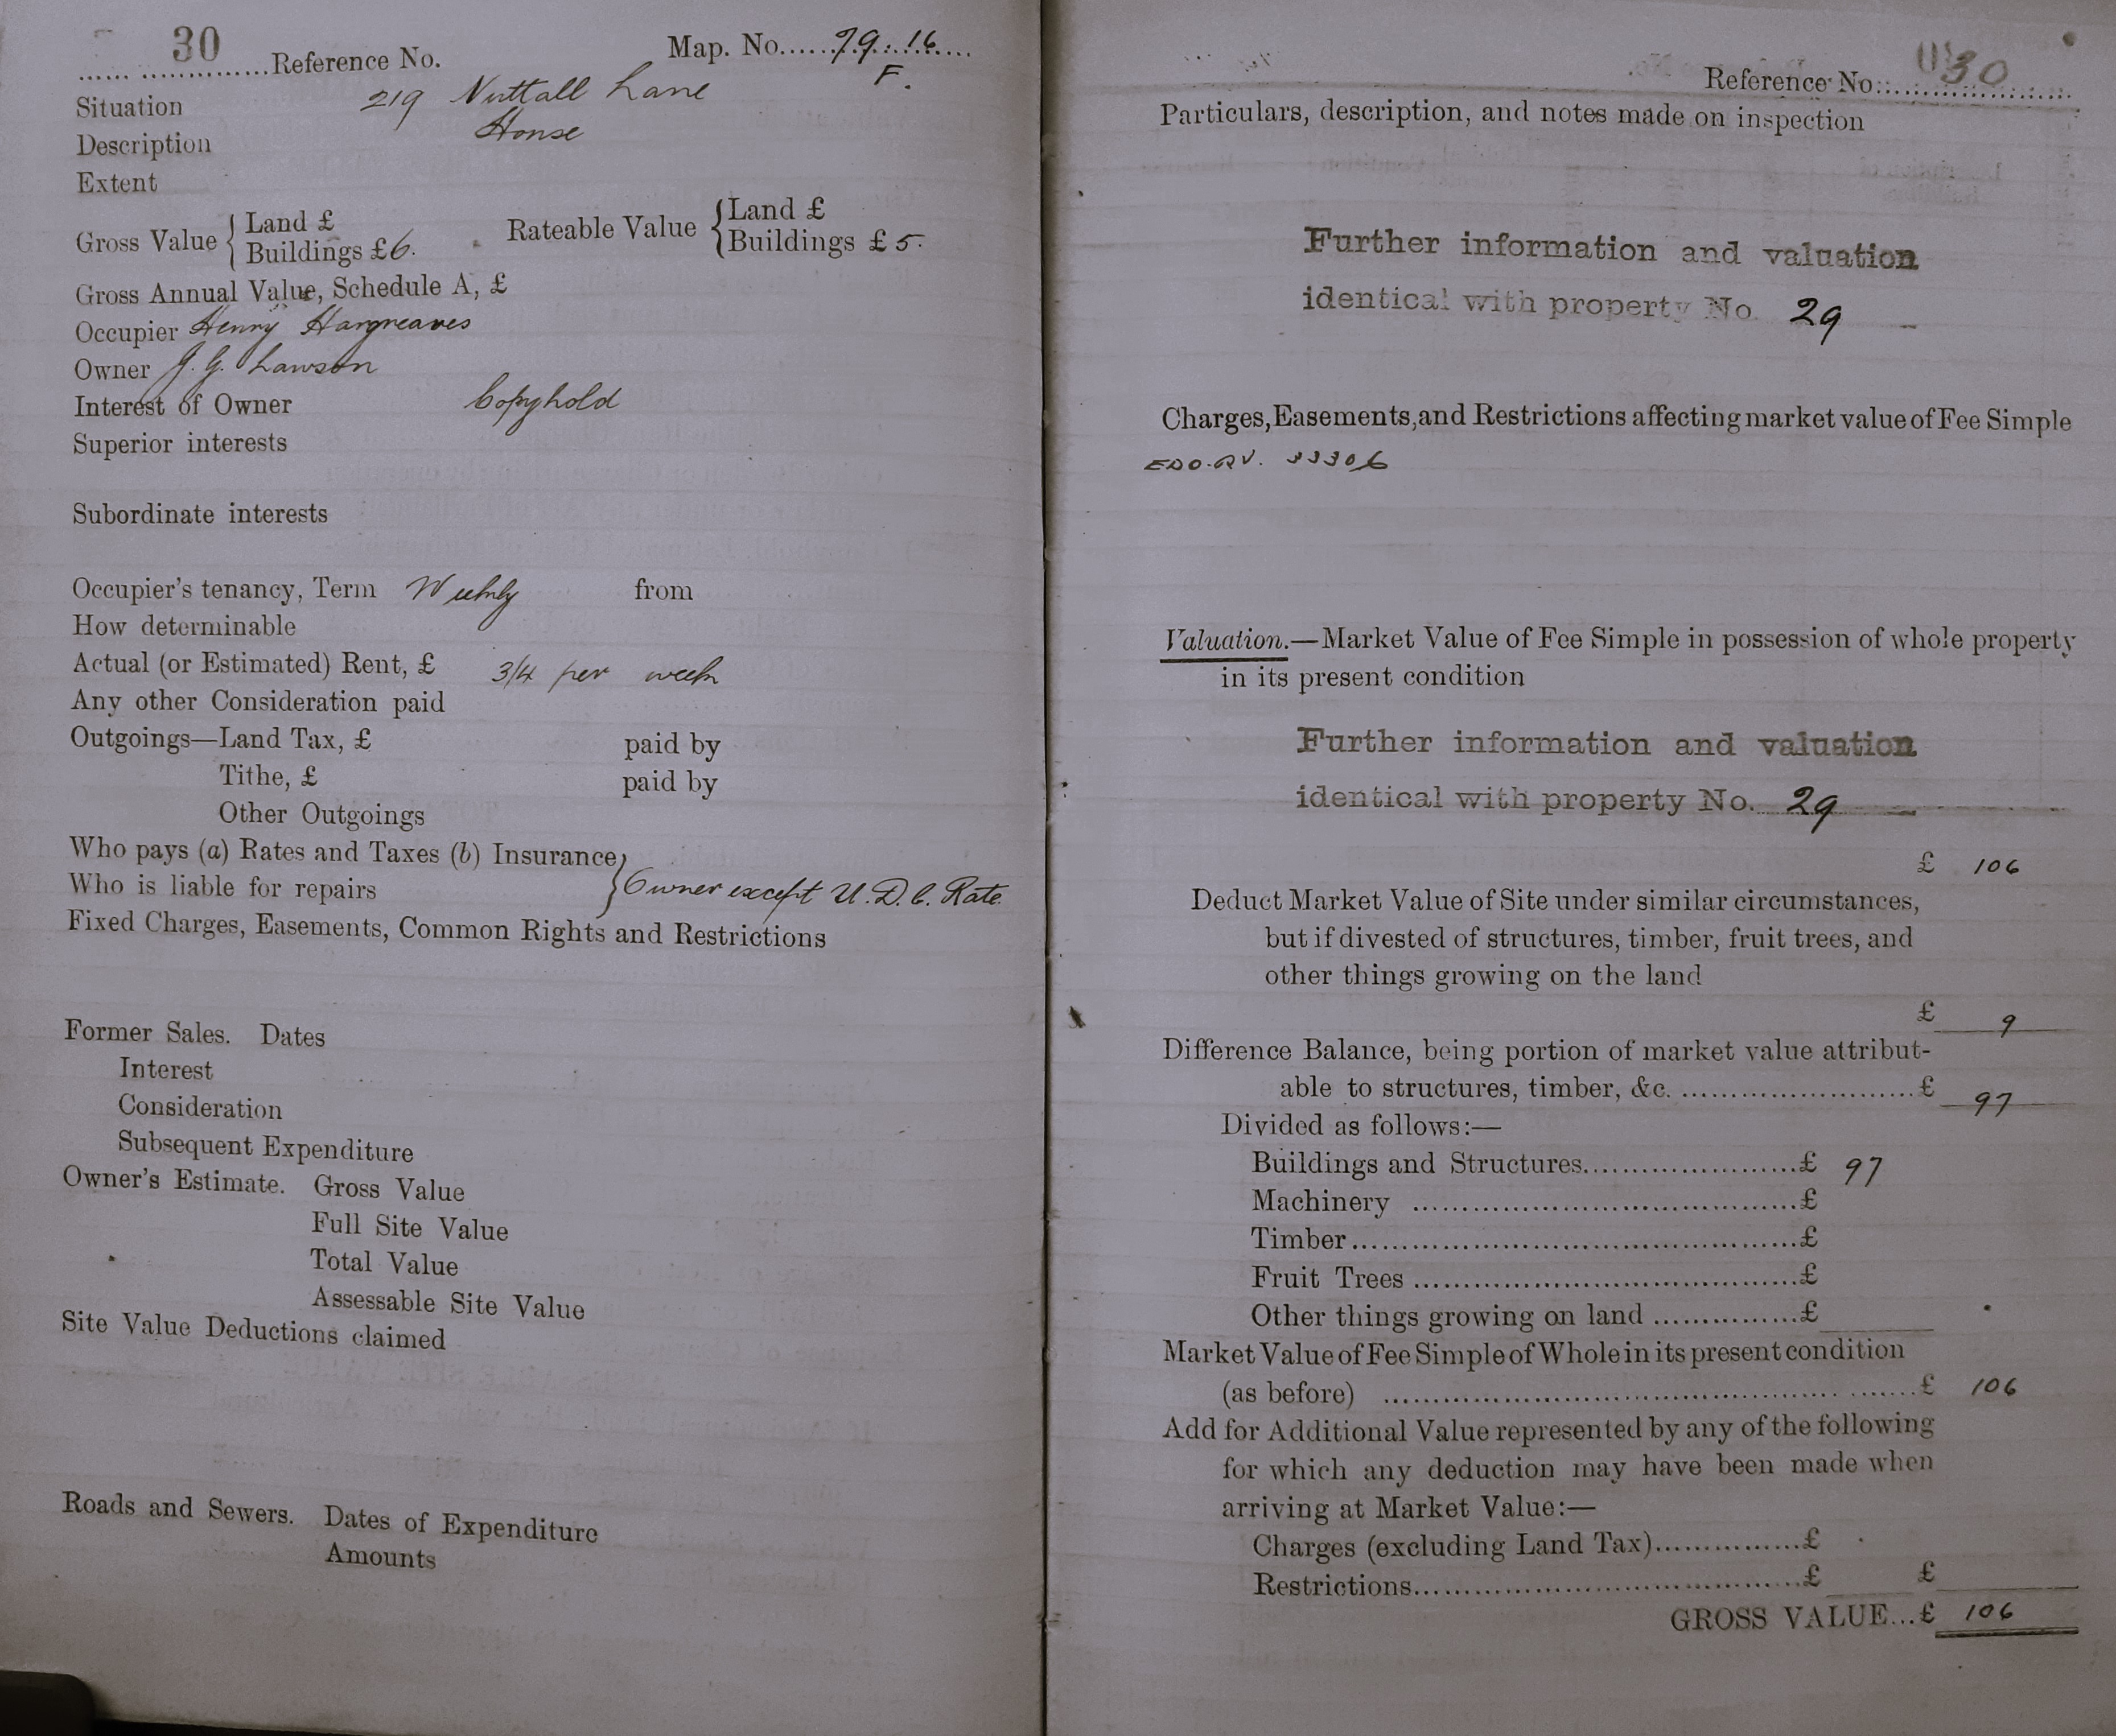 30 Reference No. Map. No. 79.16
F.
Situation 219 Nuttall Lane
Description House
Extent
Gross Value { Land £
Buildings £ 6.
Rateable Value { Land £
Buildings £ 5.
Gross Annual Value, Schedule A, £
Occupier Henry Hargreaves
Owner J. G. Lawson
Interest of Owner Copyhold
Superior interests
Subordinate interests
Occupier's tenancy, Term Weekly from
How determinable
Actual (or Estimated) Rent, £ 3/4 per week
Any other Consideration paid
Outgoings—Land Tax, £ paid by
Tithe, £ paid by
Other Outgoings
Who pays (a) Rates and Taxes (b) Insurance
Who is liable for repairs } Owner except U.D.C. Rate.
Fixed Charges, Easements, Common Rights and Restrictions
Former Sales. Dates
Interest
Consideration
Subsequent Expenditure
Owner's Estimate. Gross Value
Full Site Value
Total Value
Assessable Site Value
Site Value Deductions claimed
Roads and Sewers. Dates of Expenditure
Amounts
Reference No. 30
Particulars, description, and notes made on inspection
Further information and valuation
identical with property No. 29
Charges, Easements, and Restrictions affecting market value of Fee Simple
33306
Valuation.—Market Value of Fee Simple in possession of whole property
in its present condition
Further information and valuation
identical with property No. 29
£ 106
Deduct Market Value of Site under similar circumstances,
but if divested of structures, timber, fruit trees, and
other things growing on the land
£ 9
Difference Balance, being portion of market value attribut-
able to structures, timber, &c. £ 97
Divided as follows:—
Buildings and Structures £ 97
Machinery £
Timber £
Fruit Trees £
Other things growing on land £
Market Value of Fee Simple of Whole in its present condition
(as before) £ 106
Add for Additional Value represented by any of the following
for which any deduction may have been made when
arriving at Market Value:—
Charges (excluding Land Tax) £
Restrictions £ £
GROSS VALUE...£ 106